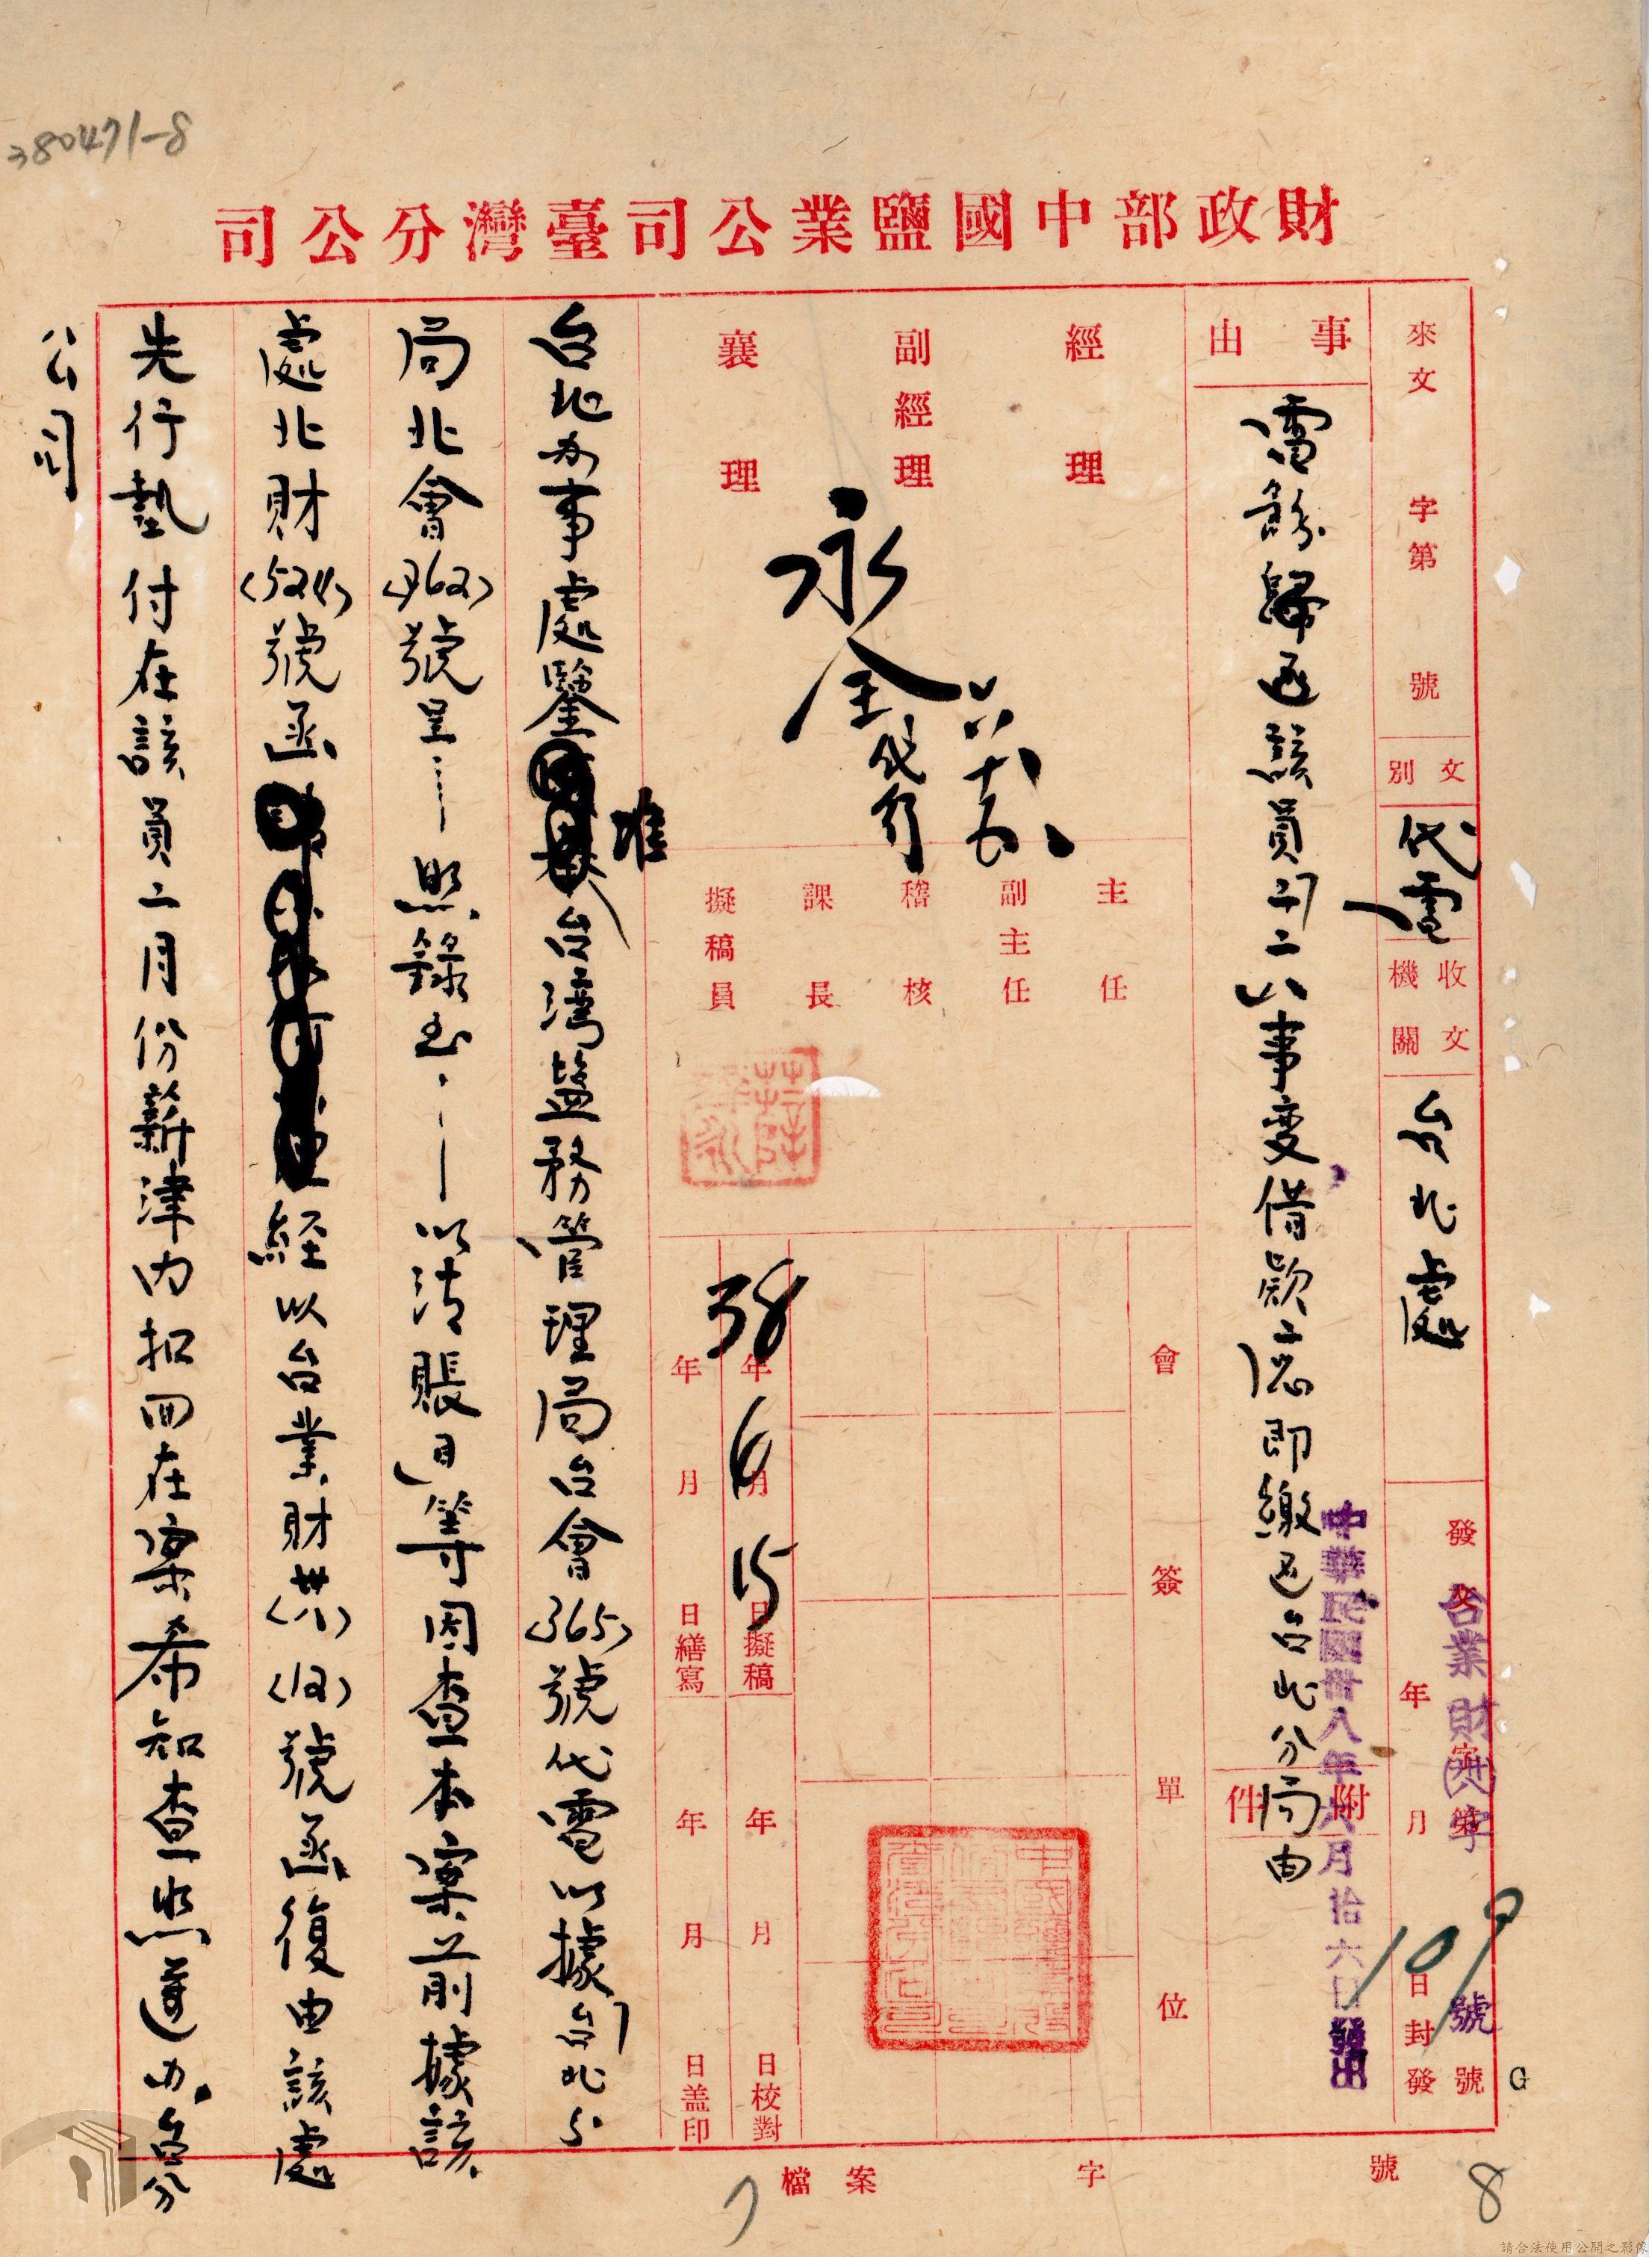 380471-8
財政部中國鹽業公司臺灣分公司
來文 字第 號
文別 代電
收文機關 台北處
發文 台業財字第 109 號
年 月 日封發
中華民國卅八年六月拾六日發出
事由
電飭歸返該員 二二八事變借款 即繳返台北分局由
附件
經理
副經理
襄理
永全代行
六、十五、
主任
副主任
稽核
課長
擬稿員
會簽單位
38年6月15日擬稿
年 月 日校對
年 月 日繕寫
年 月 日蓋印
台北办事處鑒准台湾盐務管理局台會(365)號代電以據台北分
局北會(362)號呈——照錄至——以清賬目」等因查本案前據該
處北財(524)號函經以台業財卅八(12)號函復由該處
先行墊付在該員二月份薪津内扣回在案希知查照遵办台分
公司
檔案 字 號
7
8
G
請合法使用公開之影像